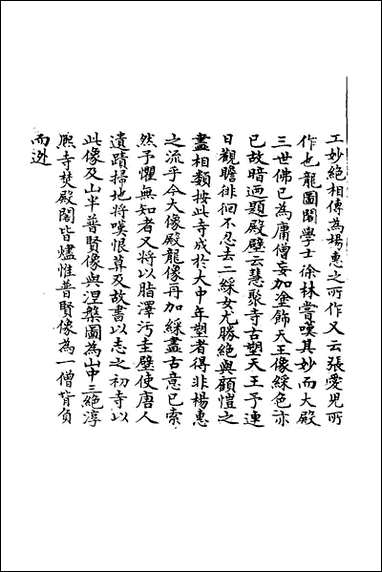 工妙絶相傳為楊惠之所作又云張愛兒所
作也龍圖閣學士徐林嘗嘆其妙而大殿
三世佛已為庸僧妄加塗飾天王像綵色亦
已故暗迺題殿壁云慧聚寺古塑天王予連
日觀瞻徘徊不忍去二綵女尤勝絶與顧愷之
畫相類按此寺成於大中年塑者得非楊惠
之流乎今大像殿龍像再加綵畫古意已索
然予懼無知者又將以脂澤汚圭壁使唐人
遺蹟掃地將嘆恨莫及故書以志之初寺以
此像及山半普賢像與涅槃圖為山中三絶淳
熈寺焚殿閣皆燼惟普賢像為一僧背負
而迯